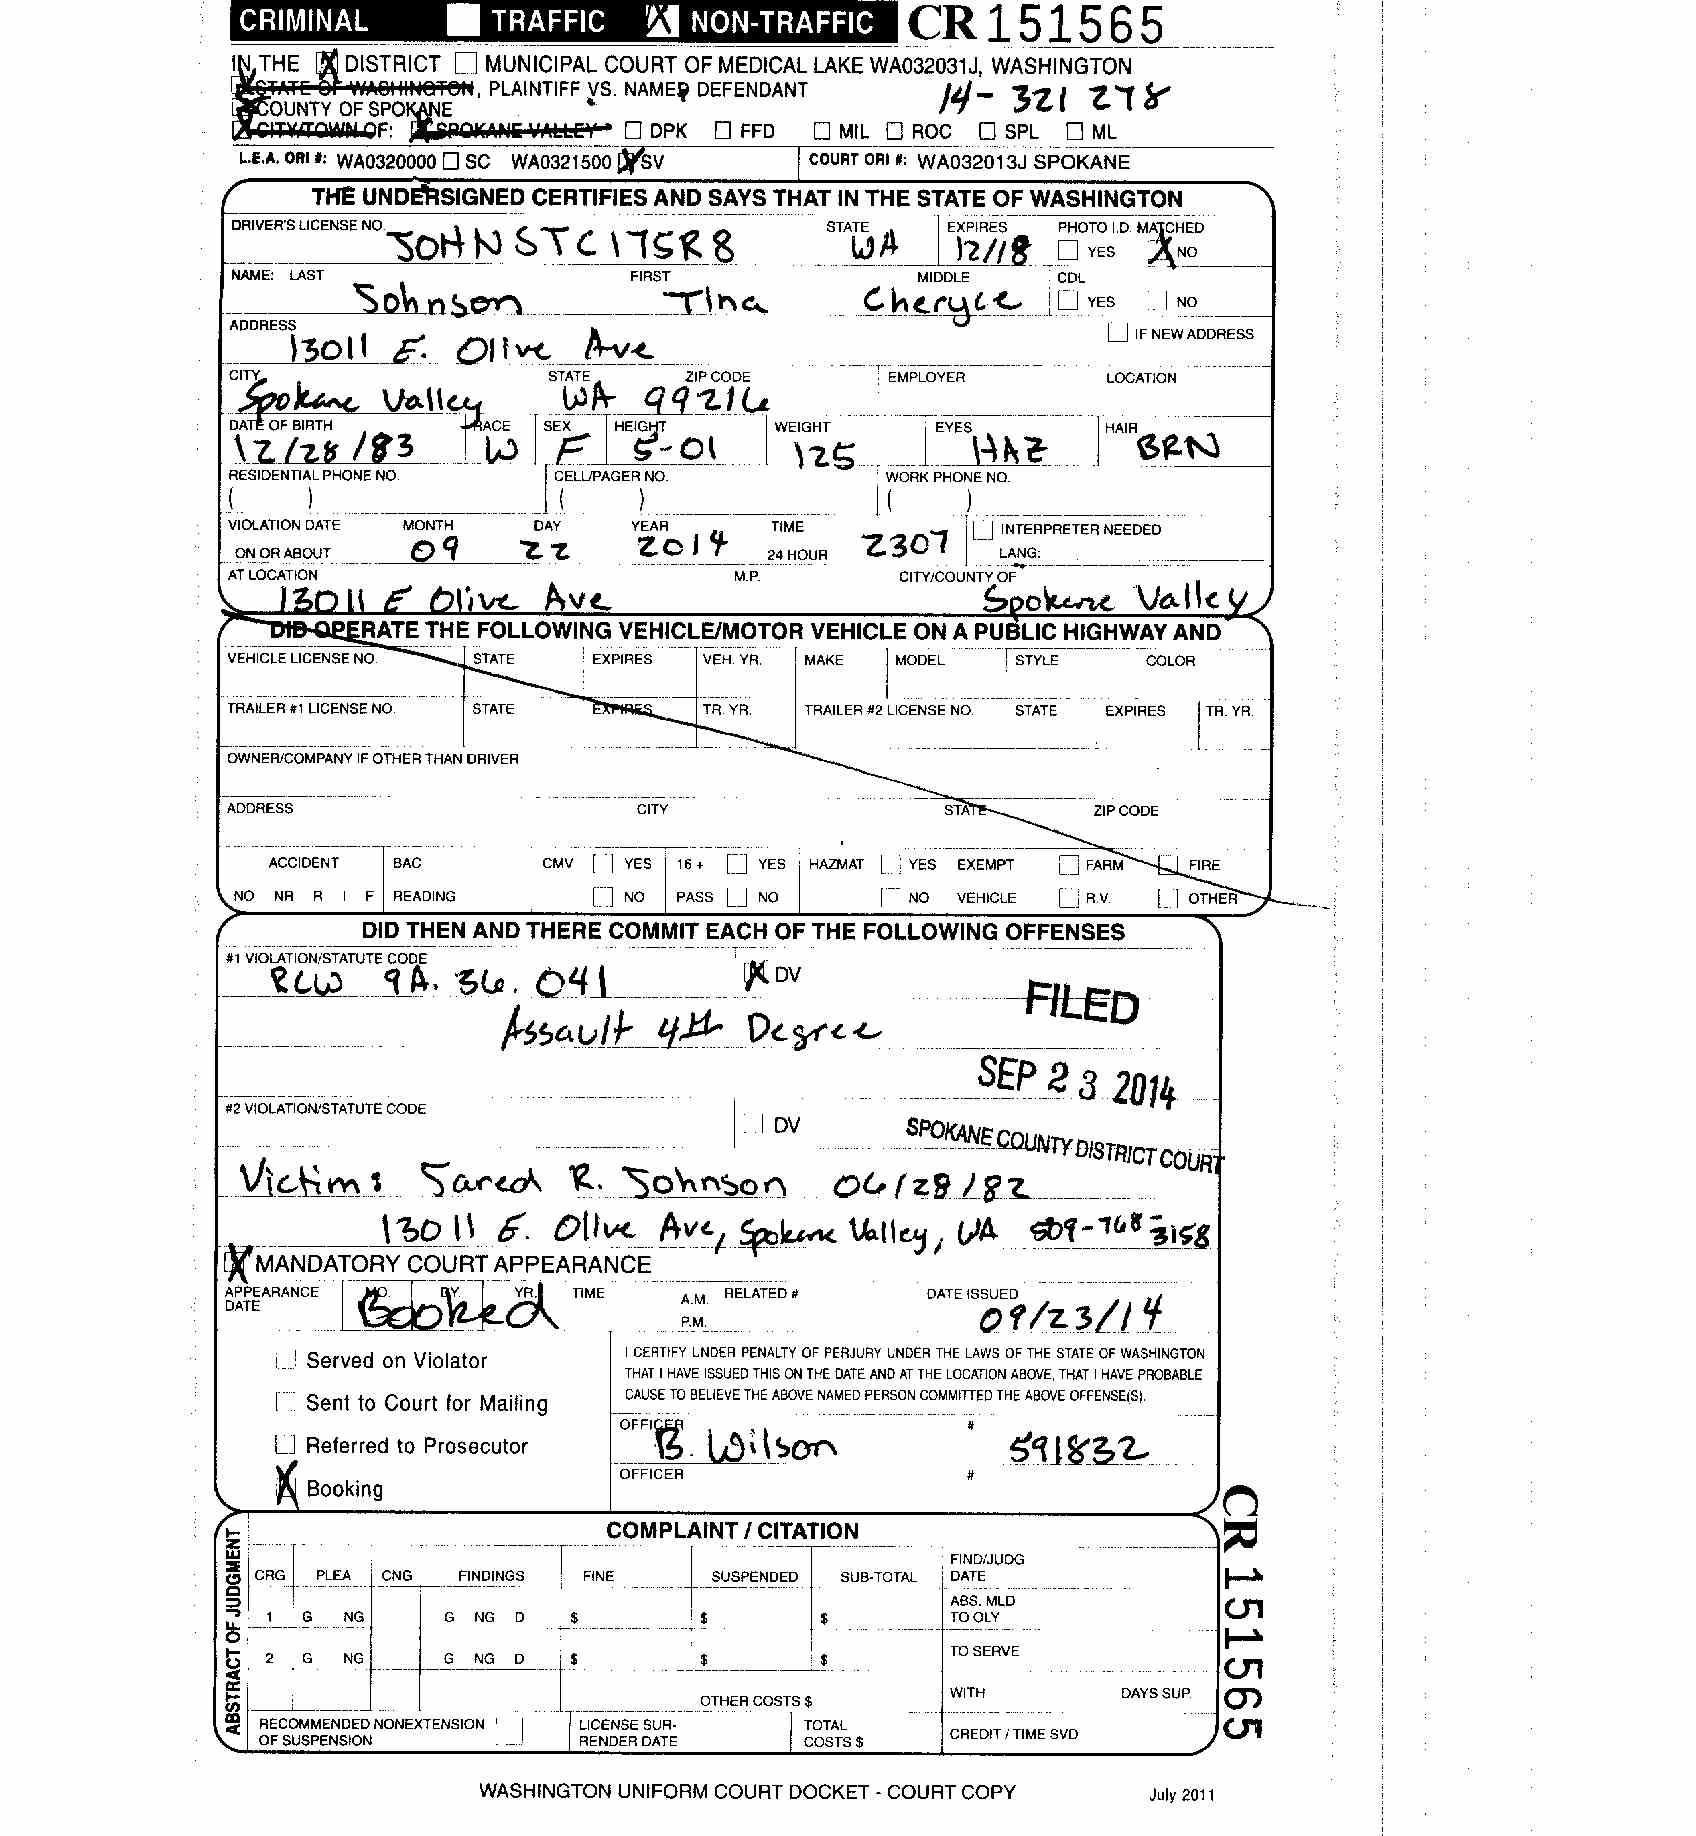 CRIMINAL TRAFFIC X NON-TRAFFIC CR 151565
IN THE X DISTRICT MUNICIPAL COURT OF MEDICAL LAKE WA032031J, WASHINGTON
STATE OF WASHINGTON, PLAINTIFF VS. NAMED DEFENDANT
COUNTY OF SPOKANE 14-321278
CITY/TOWN OF: SPOKANE VALLEY DPK FFD MIL ROC SPL ML
L.E.A. ORI #: WA0320000 SC WA0321500 X SV COURT ORI #: WA032013J SPOKANE
THE UNDERSIGNED CERTIFIES AND SAYS THAT IN THE STATE OF WASHINGTON
DRIVER'S LICENSE NO. STATE EXPIRES PHOTO I.D. MATCHED
JOHNSTC175R8 WA 12/18 YES X NO
NAME: LAST FIRST MIDDLE CDL
Johnson Tina Cheryce YES NO
ADDRESS IF NEW ADDRESS
13011 E. Olive Ave
CITY STATE ZIP CODE EMPLOYER LOCATION
Spokane Valley WA 99216
DATE OF BIRTH RACE SEX HEIGHT WEIGHT EYES HAIR
12/28/83 W F 5-01 125 HAZ BRN
RESIDENTIAL PHONE NO. CELL/PAGER NO. WORK PHONE NO.
( ) ( ) ( )
VIOLATION DATE MONTH DAY YEAR TIME INTERPRETER NEEDED
ON OR ABOUT 09 22 2014 24 HOUR 2307 LANG:
AT LOCATION M.P. CITY/COUNTY OF
13011 E Olive Ave Spokane Valley
DID OPERATE THE FOLLOWING VEHICLE/MOTOR VEHICLE ON A PUBLIC HIGHWAY AND
VEHICLE LICENSE NO. STATE EXPIRES VEH. YR. MAKE MODEL STYLE COLOR
TRAILER #1 LICENSE NO. STATE EXPIRES TR. YR. TRAILER #2 LICENSE NO. STATE EXPIRES TR. YR.
OWNER/COMPANY IF OTHER THAN DRIVER
ADDRESS CITY STATE ZIP CODE
ACCIDENT BAC CMV YES 16 + YES HAZMAT YES EXEMPT FARM FIRE
NO NR R I F READING NO PASS NO NO VEHICLE R.V. OTHER
DID THEN AND THERE COMMIT EACH OF THE FOLLOWING OFFENSES
#1 VIOLATION/STATUTE CODE
RCW 9A.36.041 X DV
FILED
Assault 4th Degree
SEP 23 2014
#2 VIOLATION/STATUTE CODE DV
SPOKANE COUNTY DISTRICT COURT
Victim: Jared R. Johnson 06/28/82
13011 E. Olive Ave, Spokane Valley, WA 509-768-3158
X MANDATORY COURT APPEARANCE
APPEARANCE DATE MO. DY. YR. TIME A.M. P.M. RELATED # DATE ISSUED
Booked 09/23/14
Served on Violator
Sent to Court for Mailing
Referred to Prosecutor
X Booking
I CERTIFY UNDER PENALTY OF PERJURY UNDER THE LAWS OF THE STATE OF WASHINGTON
THAT I HAVE ISSUED THIS ON THE DATE AND AT THE LOCATION ABOVE, THAT I HAVE PROBABLE
CAUSE TO BELIEVE THE ABOVE NAMED PERSON COMMITTED THE ABOVE OFFENSE(S).
OFFICER #
B. Wilson 591832
OFFICER #
CR 151565
ABSTRACT OF JUDGMENT
COMPLAINT / CITATION
CRG PLEA CNG FINDINGS FINE SUSPENDED SUB-TOTAL FIND/JUDG DATE
1 G NG G NG D $ $ $ ABS. MLD TO OLY
2 G NG G NG D $ $ $ TO SERVE
OTHER COSTS $ WITH DAYS SUP.
RECOMMENDED NONEXTENSION OF SUSPENSION LICENSE SUR-RENDER DATE TOTAL COSTS $ CREDIT / TIME SVD
WASHINGTON UNIFORM COURT DOCKET - COURT COPY July 2011